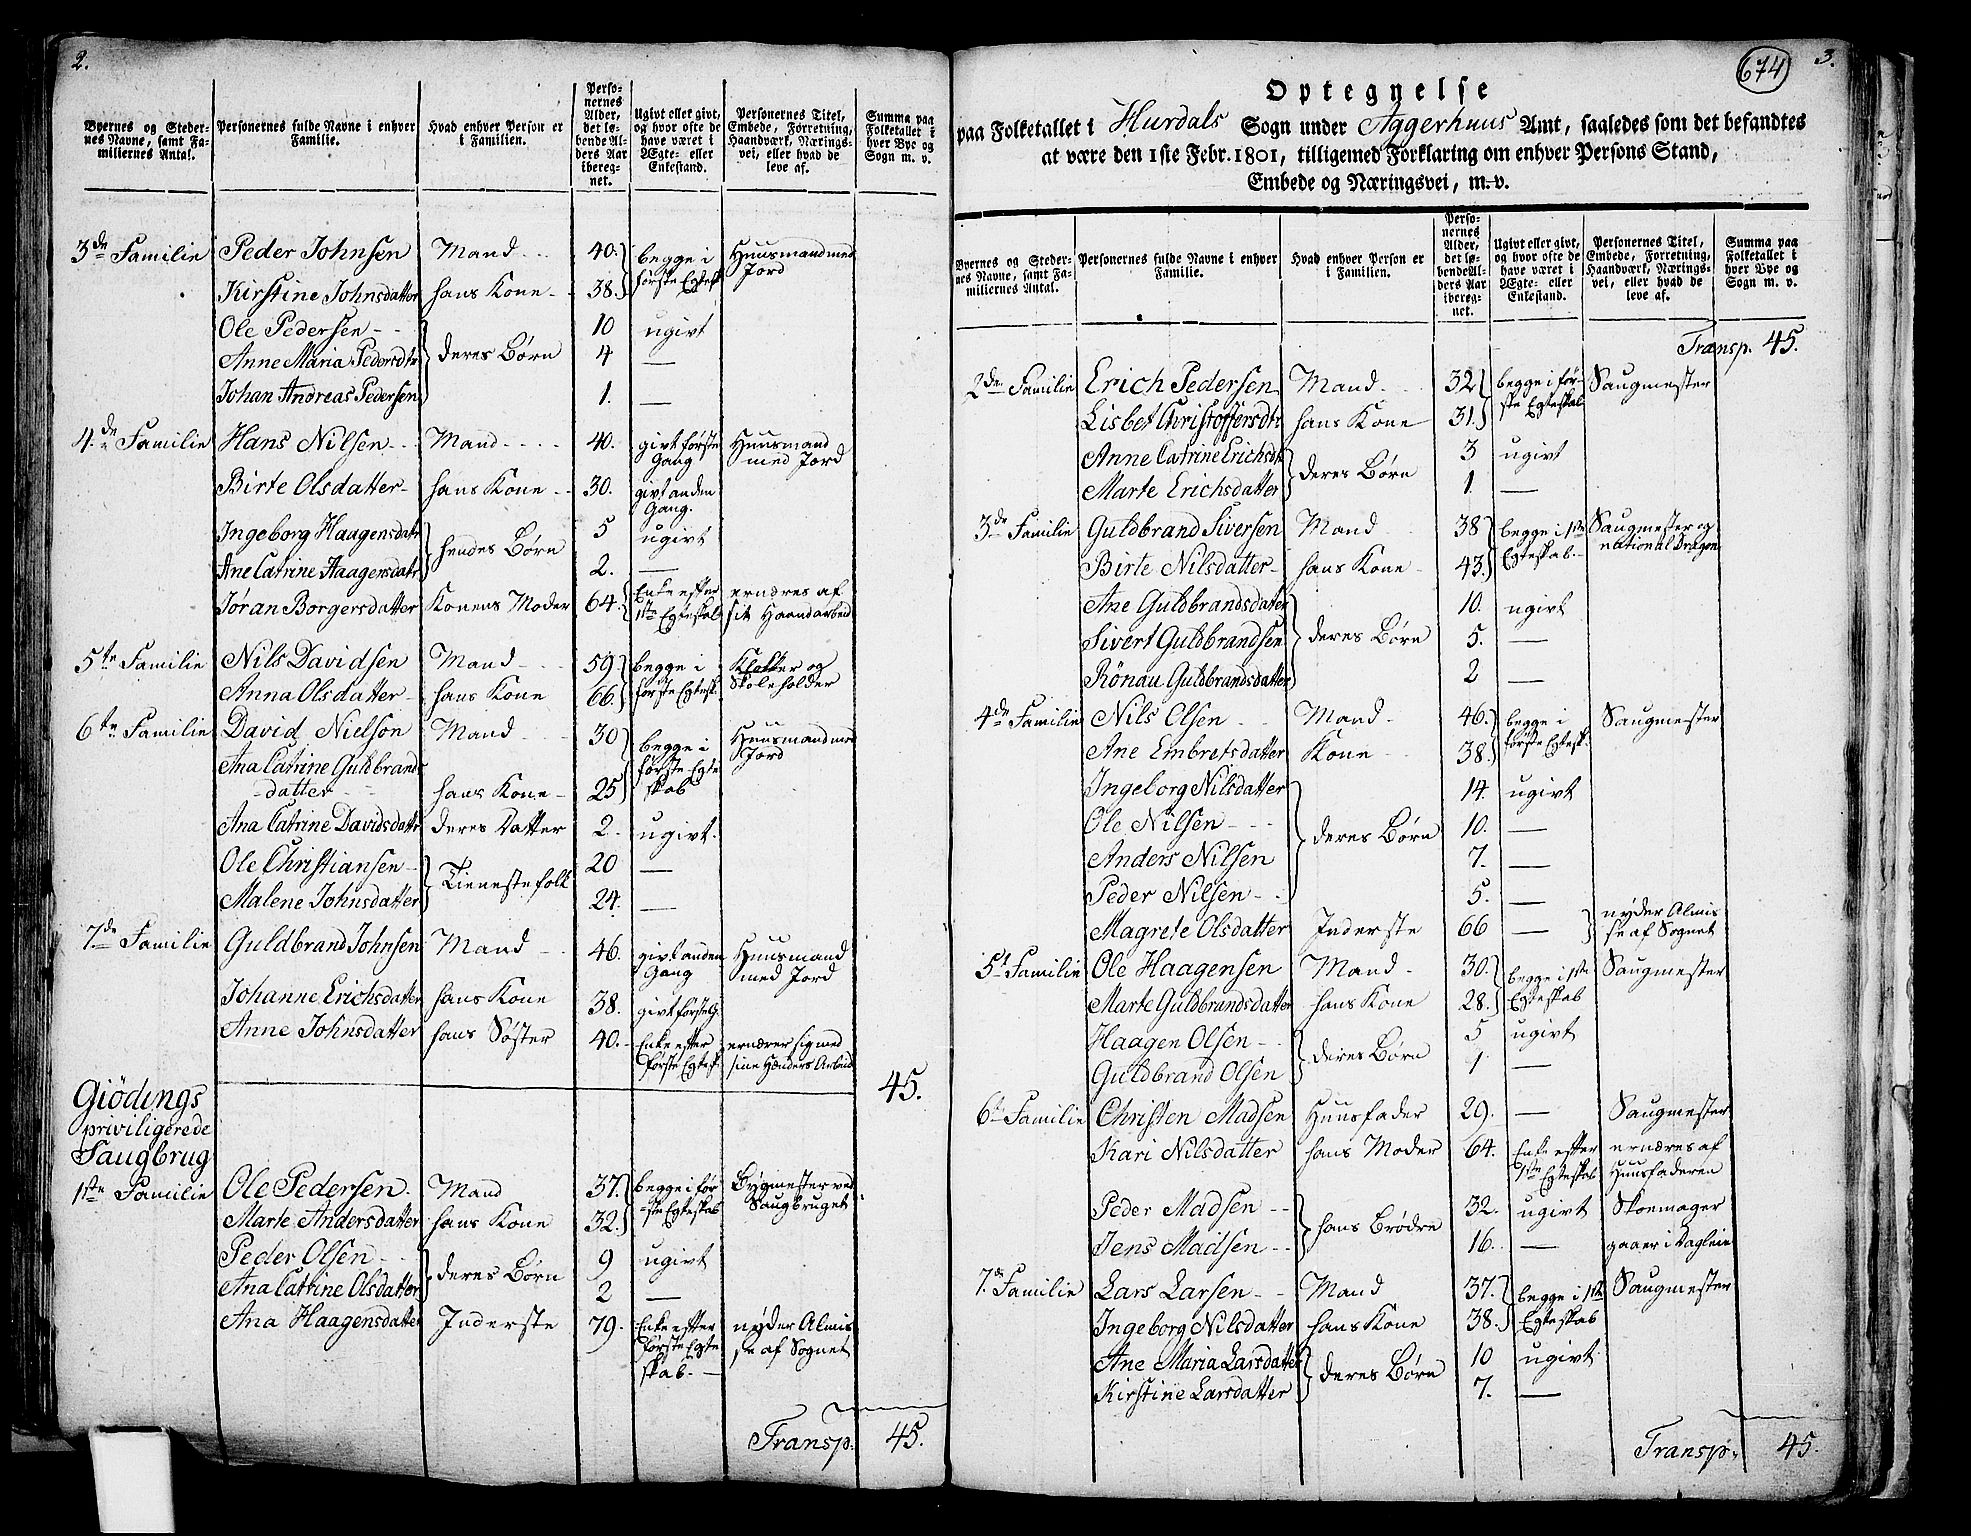 2.
Byernes og Steder-
nes Navne, samt Fa-
miliernes Antal.
Personernes fulde Navne i enhver
Familie.
Hvad enhver Person er
i Familien.
Perso-
nernes
Alder,
det lø-
bende Al-
ders Aar
ibereg-
net.
Ugivt eller givt,
og hvor ofte de
have været i
Ægte- eller
Enkestand.
Personernes Titel,
Embede, Forretning,
Haandværk, Nærings-
vei, eller hvad de
leve af.
Summa paa
Folketallet i
hver Bye og
Sogn m. v.
3de Familie Peder Johnsen Mand 40. begge i Huusmand med
Kirstine Johnsdatter hans Kone 38. første Egtesk Jord
Ole Pedersen 10 ugivt
Anne Maria Pedersdtr deres Børn 4 —
Johan Andreas Pedersen 1. —
4de Familie Hans Nilsen Mand 40. givt første Huusmand
Gang med Jord
Birte Olsdatter hans Kone 30. givt anden
Gang.
Ingeborg Haagensdatr 5 ugivt
hendes Børn
Ane Catrine Haagensdatr 2. —
Jøran Borgersdatter Konens Moder 64. Enke efter ernæres af
1ste Egteskab sit Haandarbeid
5te Familie Nils Davidsen Mand 59 begge i Klokker og
Anna Olsdatter hans Kone 66. første Egtesk. Skoleholder
6te Familie David Nielson Mand 30 begge i Huusmand med
Ana Catrine Guldbrands første Egte Jord
datter hans Kone 25 skab
Ana Catrine Davidsdattr deres Datter 2. ugivt.
Ole Christiansen 20 —
Tienestefolk
Malene Johnsdatter 24. —
7de Familie Guldbrand Johnsen Mand 46. givt anden Huusmand
Gang med Jord
Johanne Erichsdatter hans Kone 38. givt førsteg.
Anne Johnsdatter hans Søster 40. Enke efter ernærer sig med
første Egtesk. sine Hænders Arbeid
45.
Giödings
priviligerede
Saugbrug
1ste Familie Ole Pedersen Mand 37. begge i før Bygmester ved
Marte Andersdatter hans Kone 32. ste Egteskab Saugbruget
Peder Olsen 9 ugivt
deres Børn
Ana Catrine Olsdatter 2 —
Ana Haagensdatter Inderste 79. Enke efter nyder Almis
første Egte se af Sognet
skab.
Transp. 45.
674
3.
Optegnelse
paa Folketallet i Hurdals Sogn under Aggerhuus Amt, saaledes som det befandtes
at være den 1ste Febr. 1801, tilligemed Forklaring om enhver Persons Stand,
Embede og Næringsvei, m. v.
Byernes og Steder-
nes Navne, samt Fa-
miliernes Antal.
Personernes fulde Navne i enhver
Familie.
Hvad enhver Person er
i Familien.
Perso-
nernes
Alder,
det lø-
bende Al-
ders Aar
ibereg-
net.
Ugivt eller givt,
og hvor ofte de
have været i
Ægte- eller
Enkestand.
Personernes Titel,
Embede, Forretning,
Haandværk, Nærings-
vei, eller hvad de
leve af.
Summa paa
Folketallet i
hver Bye og
Sogn m. v.
Transp. 45.
2de Familie Erich Pedersen Mand 32 begge i før- Saugmester
Lisbet Christoffersdtr hans Kone 31. ste Egteskab
Anne Catrine Erichsdtr 3 ugivt
deres Børn
Marte Erichsdatter 1. —
3de Familie Guldbrand Siversen Mand 38 begge i 1ste Saugmester og
Birte Nilsdatter hans Kone 43. Egteskab national Dragon
Ane Guldbrandsdatter 10. ugivt
Sivert Guldbrandsen deres Børn 5. —
Rönau Guldbrandsdatter 2 —
4de Familie Nils Olsen Mand 46. begge i Saugmester
Ane Embretsdatter Kone 38. første Egtesk.
Ingeborg Nilsdatter 14. ugivt
Ole Nilsen deres Børn 10. —
Anders Nilsen 7. —
Peder Nilsen 5. —
Magrete Olsdatter Inderste 66 — nyder Almis
se af Sognet
5t Familie Ole Haagensen Mand 30. begge i 1ste Saugmester
Marte Guldbrandsdatter hans Kone 28. Egteskab
Haagen Olsen 5 ugivt
deres Børn
Guldbrand Olsen 1. —
6te Familie Christen Madsen Huusfader 29. — Saugmester
Kari Nilsdatter hans Moder 64. Enke efter ernæres af
1ste Egteskab Huusfaderen
Peder Madsen 32. ugivt Skoemager
hans Brødre
Jens Madsen 16. — gaaer i Dagleie
7de Familie Lars Larsen Mand 37. begge i 1ste Saugmester
Ingeborg Nilsdatter hans Kone 38. Egteskab
Ane Maria Larsdatter 10 ugivt
deres Børn
Kirstine Larsdatter 7. —
Transp. 45.